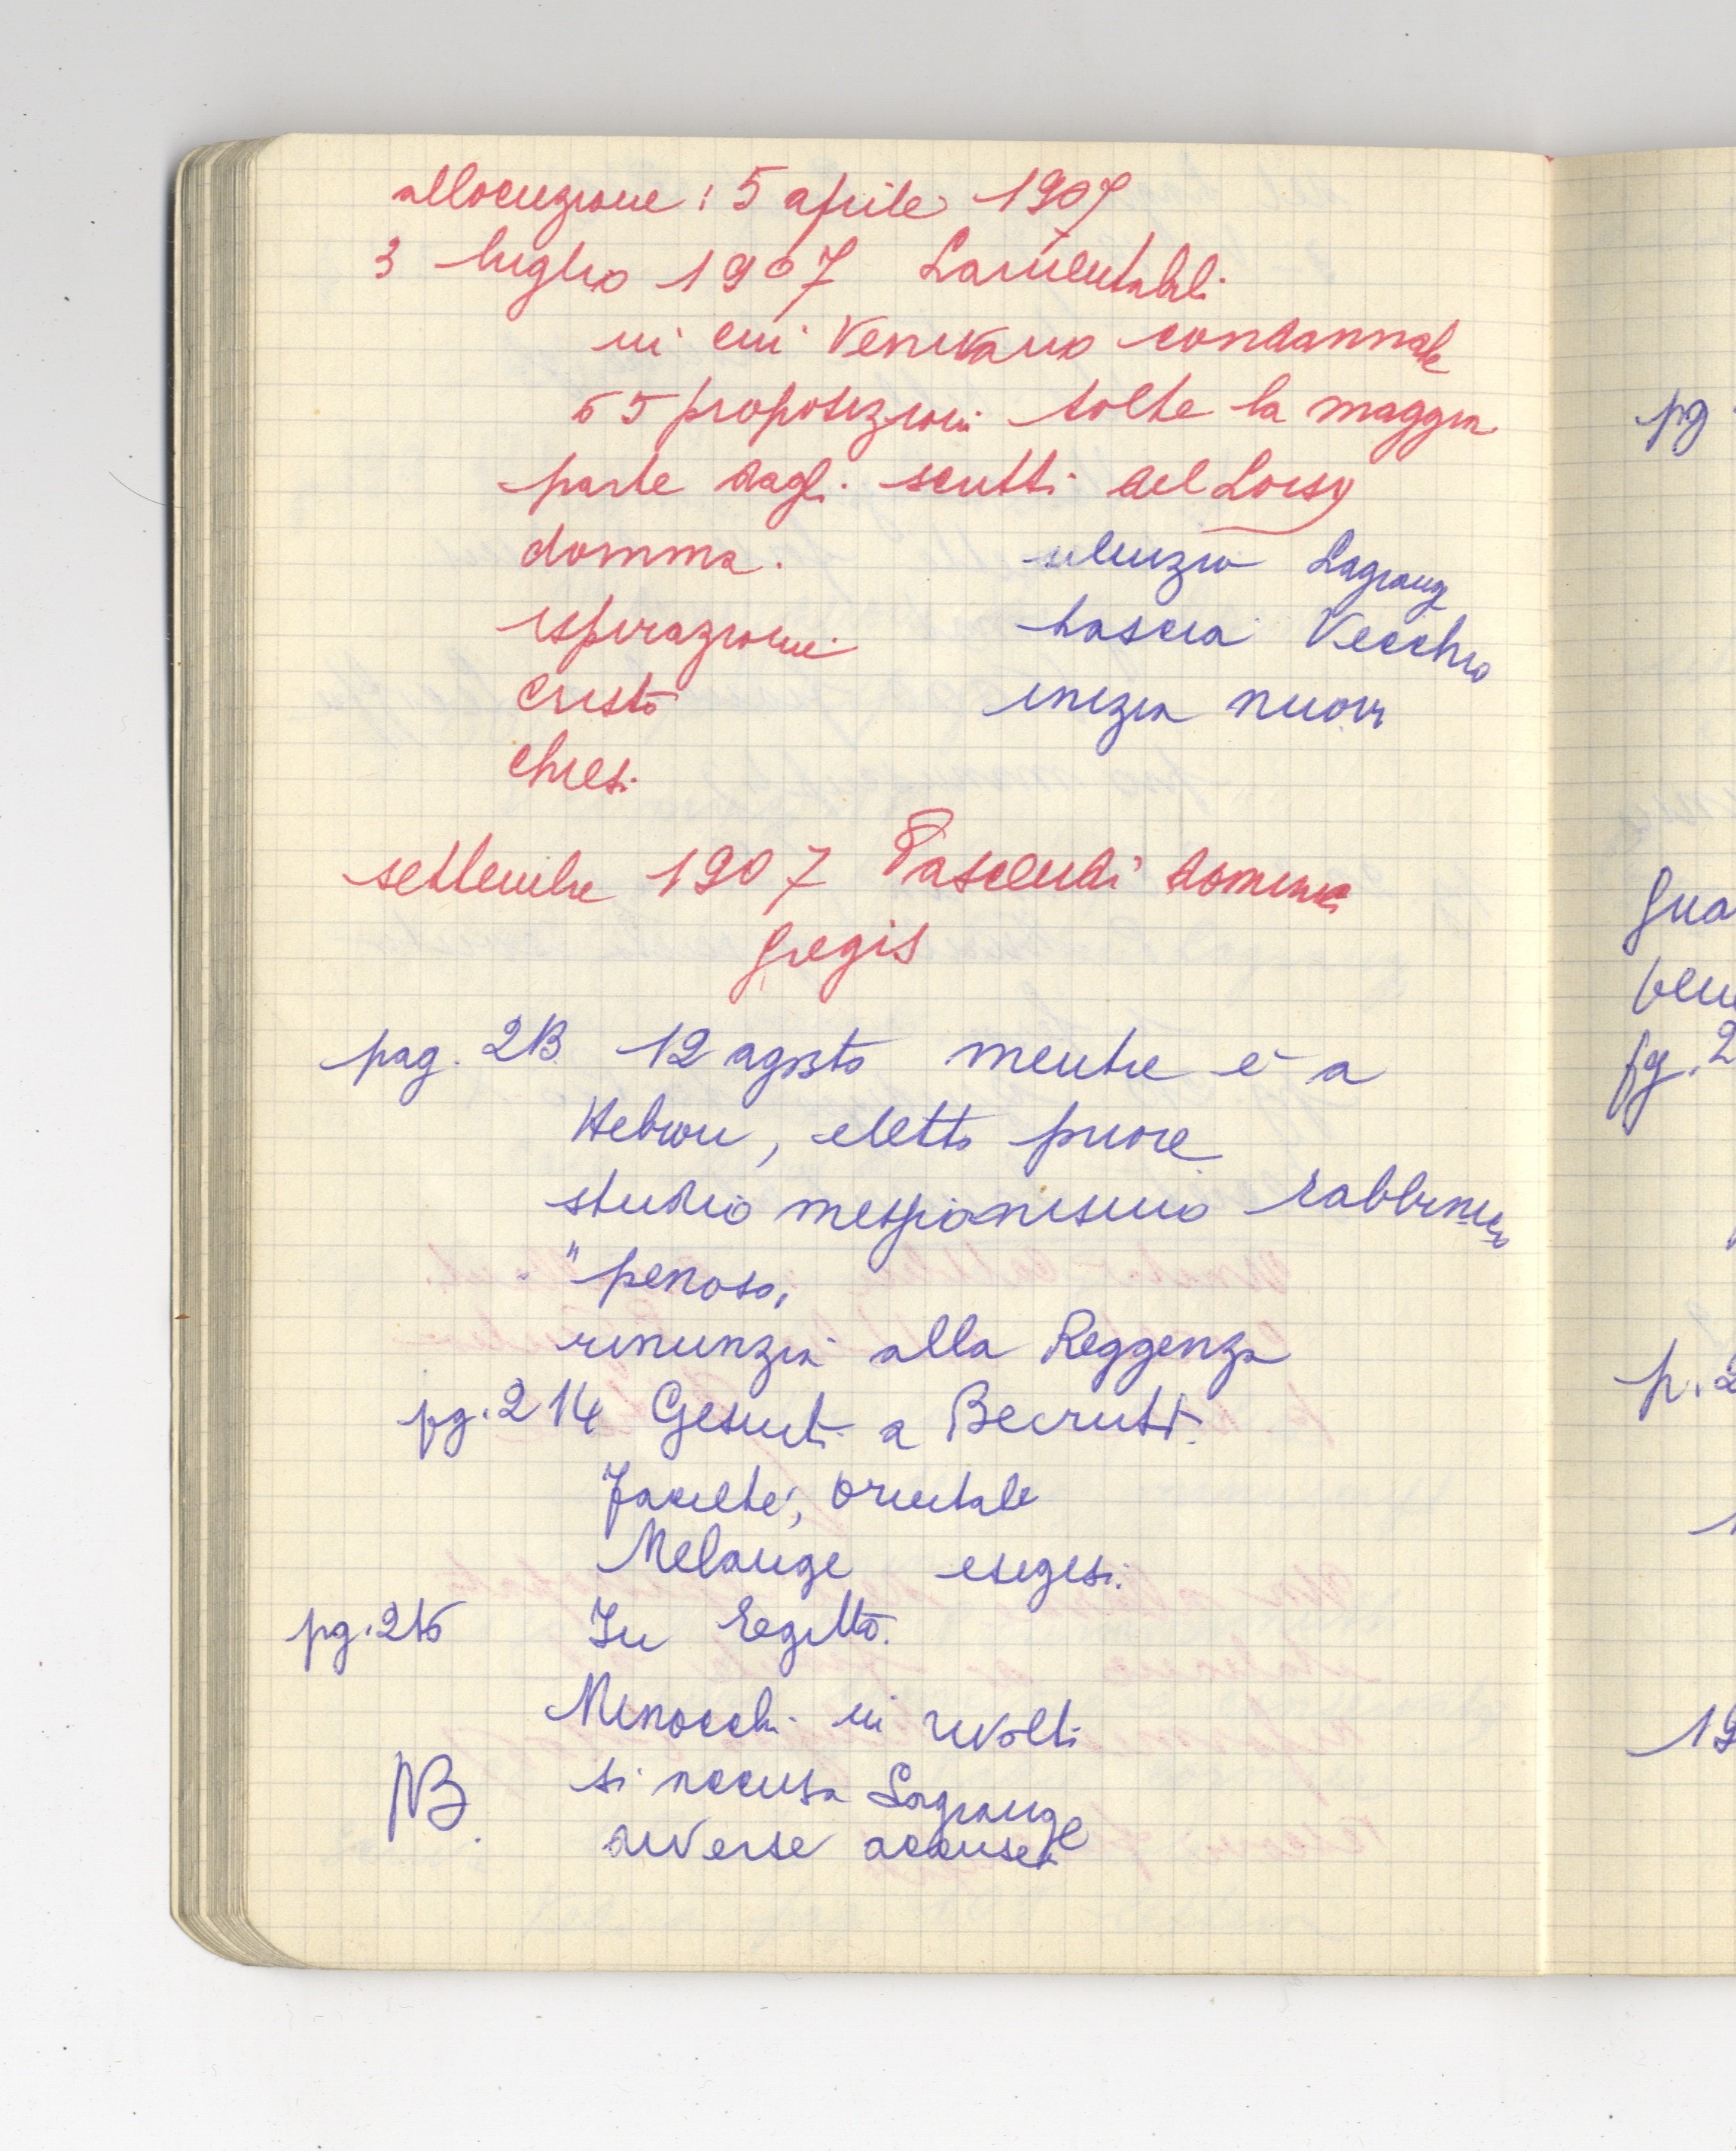 allocuzione: 5 aprile 1907
3 luglio 1907 Lamentabili
in cui venivano condannate
65 proposizioni tolte la maggior
parte dagli scritti del Loisy
domma. silenzio Lagrang
ispirazione lascia Vecchio
Cristo inizia nuovo
Chiesi
settembre 1907 Pascendi dominici
gregis
pag. 213 12 agosto mentre è a
Hebron, eletto priore
studio messianismo rabbinico
" penoso,
rinunzia alla Reggenza
pg. 214 Gesuiti a Beirutt.
Facolté, orientale
Melange esegesi.
pg. 215 In Egitto.
Minocchi in rivolti
NB. si accusa Lagrange
diverse accuse
pg
p. 2